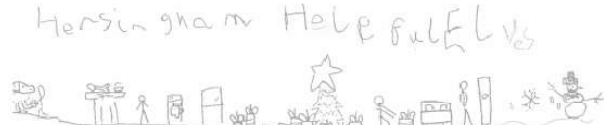 Hensingham HeLpfulELves